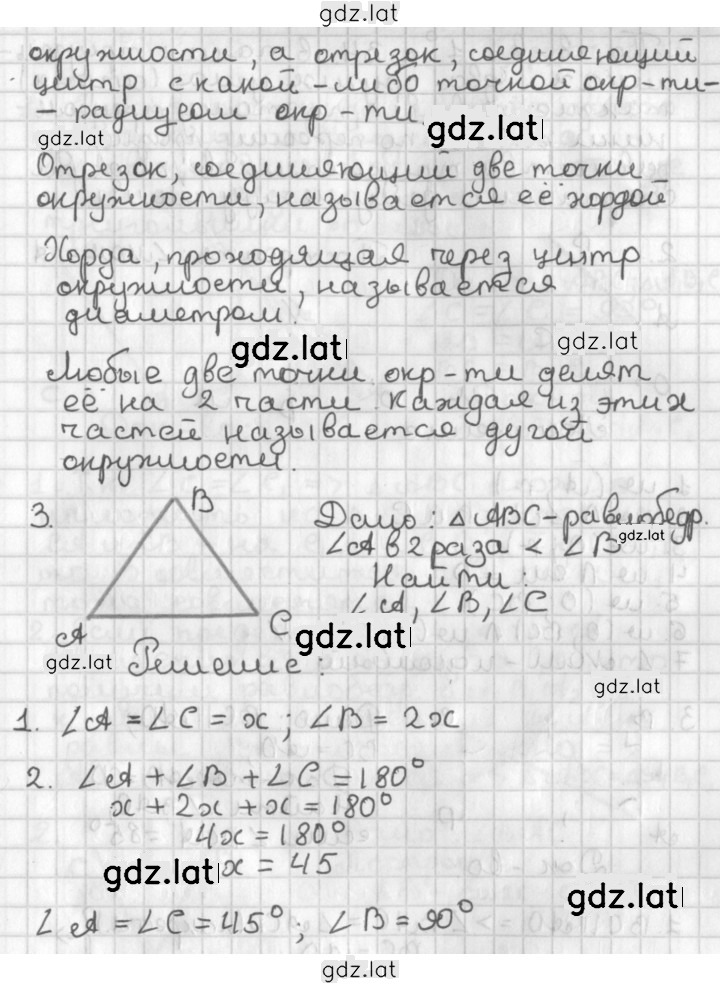 gdz.lat
окружности, а отрезок, соединяющий
центр с какой-либо точкой окр-ти-
- радиусом окр-ти.
gdz.lat
gdz.lat
Отрезок, соединяющий две точки
окружности, называется её хордой
Хорда, проходящая через центр
окружности, называется
диаметром.
gdz.lat
gdz.lat
Любые две точки окр-ти делят
её на 2 части. Каждая из этих
частей называется дугой
окружности.
3.
B
A
C
Дано: △ABC-равнобедр.
gdz.lat
∠A в 2 раза < ∠B
Найти:
∠A, ∠B, ∠C
gdz.lat
gdz.lat
Решение:
gdz.lat
1. ∠A = ∠C = x; ∠B = 2x
2. ∠A + ∠B + ∠C = 180°
x + 2x + x = 180°
4x = 180°
gdz.lat
x = 45
gdz.lat
∠A = ∠C = 45°; ∠B = 90°
gdz.lat